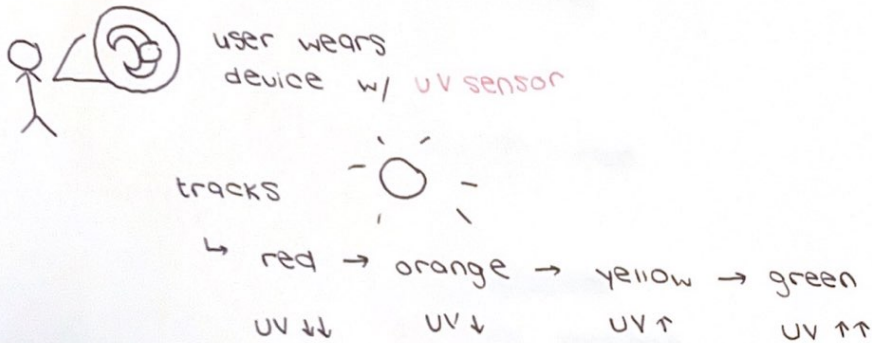 user wears
device w/ UV sensor
tracks
↳ red → orange → yellow → green
UV ↓↓ UV ↓ UV ↑ UV ↑↑